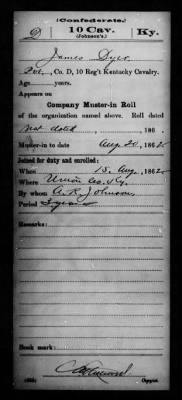 (Confederate.)
D 10 Cav. Ky.
(Johnson's.)
James Dyer
Pvt., Co. D, 10 Reg't Kentucky Cavalry.
Age years.
Appears on
Company Muster-in Roll
of the organization named above. Roll dated
Not dated, 186
Muster-in to date Aug 20, 1862
Joined for duty and enrolled:
When 15 Aug, 1862
Where Union Co. Ky.
By whom A. R. Johnson
Period 3 years
Remarks:
Book mark:
Copyist.